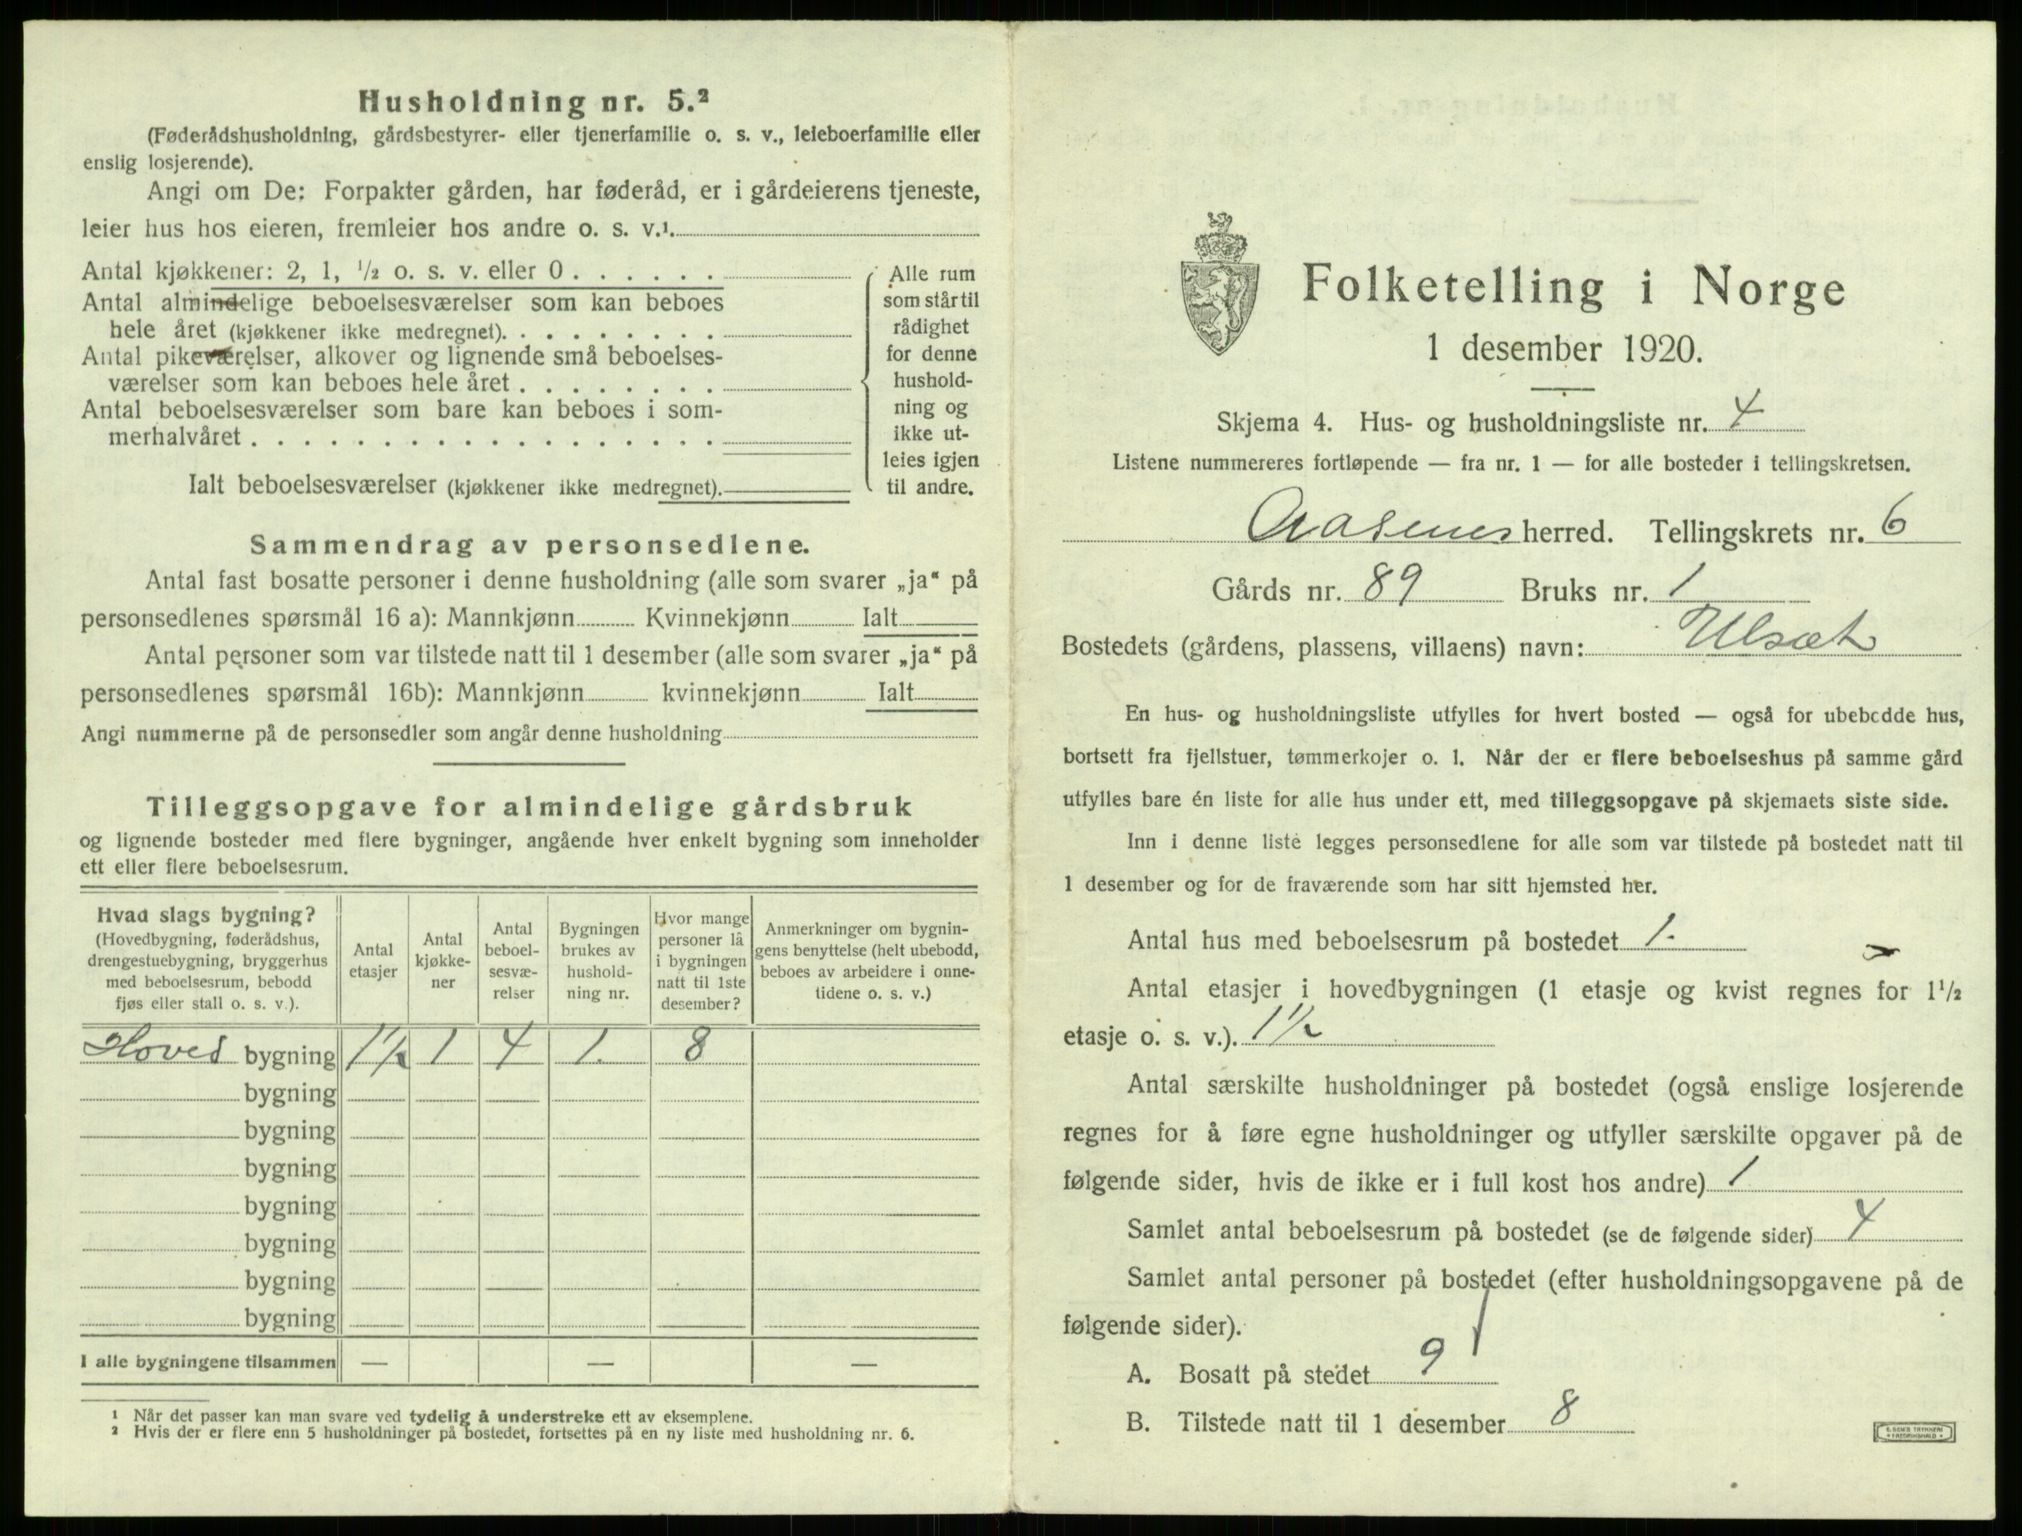 Husholdning nr. 5.²
(Føderådshusholdning, gårdsbestyrer- eller tjenerfamilie o. s. v., leieboerfamilie eller
enslig losjerende).
Angi om De: Forpakter gården, har føderåd, er i gårdeierens tjeneste,
leier hus hos eieren, fremleier hos andre o. s. v.¹.
Antal kjøkkener: 2, 1, ½ o. s. v. eller 0 . . . . . .
Antal almindelige beboelsesværelser som kan beboes
hele året (kjøkkener ikke medregnet). . . . . . . . .
Antal pikeværelser, alkover og lignende små beboelses-
værelser som kan beboes hele året . . . . . . . .
Antal beboelsesværelser som bare kan beboes i som-
merhalvåret . . . . . . . . . . . . . . . . . .
Ialt beboelsesværelser (kjøkkener ikke medregnet).
Alle rum
som står til
rådighet
for denne
hushold-
ning og
ikke ut-
leies igjen
til andre.
Sammendrag av personsedlene.
Antal fast bosatte personer i denne husholdning (alle som svarer „ja“ på
personsedlenes spørsmål 16 a): Mannkjønn Kvinnekjønn Ialt
Antal personer som var tilstede natt til 1 desember (alle som svarer „ja“ på
personsedlenes spørsmål 16b): Mannkjønn kvinnekjønn Ialt
Angi nummerne på de personsedler som angår denne husholdning
Tilleggsopgave for almindelige gårdsbruk
og lignende bosteder med flere bygninger, angående hver enkelt bygning som inneholder
ett eller flere beboelsesrum.
Hvad slags bygning?
(Hovedbygning, føderådshus,
drengestuebygning, bryggerhus
med beboelsesrum, bebodd
fjøs eller stall o. s. v.).
Antal
etasjer
Antal
kjøkke-
ner
Antal
beboel-
sesvæ-
relser
Bygningen
brukes av
hushold-
ning nr.
Hvor mange
personer lå
i bygningen
natt til 1ste
desember?
Anmerkninger om bygnin-
gens benyttelse (helt ubebodd,
beboes av arbeidere i onne-
tidene o. s. v.)
Hoved bygning 1½ 1 4 1. 8
bygning
bygning
bygning
bygning
bygning
bygning
bygning
I alle bygningene tilsammen — — —
¹ Når det passer kan man svare ved tydelig å understreke ett av eksemplene.
² Hvis der er flere enn 5 husholdninger på bostedet, fortsettes på en ny liste med husholdning nr. 6.
Folketelling i Norge
1 desember 1920.
Skjema 4. Hus- og husholdningsliste nr. 4
Listene nummereres fortløpende — fra nr. 1 — for alle bosteder i tellingskretsen.
Aasenes herred. Tellingskrets nr. 6
Gårds nr. 89 Bruks nr. 1
Bostedets (gårdens, plassens, villaens) navn: Ulsæt
En hus- og husholdningsliste utfylles for hvert bosted — også for ubebodde hus,
bortsett fra fjellstuer, tømmerkojer o. l. Når der er flere beboelseshus på samme gård
utfylles bare én liste for alle hus under ett, med tilleggsopgave på skjemaets siste side.
Inn i denne liste legges personsedlene for alle som var tilstede på bostedet natt til
1 desember og for de fraværende som har sitt hjemsted her.
Antal hus med beboelsesrum på bostedet 1.
Antal etasjer i hovedbygningen (1 etasje og kvist regnes for 1½
etasje o. s. v.). 1½
Antal særskilte husholdninger på bostedet (også enslige losjerende
regnes for å føre egne husholdninger og utfyller særskilte opgaver på de
følgende sider, hvis de ikke er i full kost hos andre) 1
Samlet antal beboelsesrum på bostedet (se de følgende sider) 4
Samlet antal personer på bostedet (efter husholdningsopgavene på de
følgende sider).
A. Bosatt på stedet 9
B. Tilstede natt til 1 desember 8